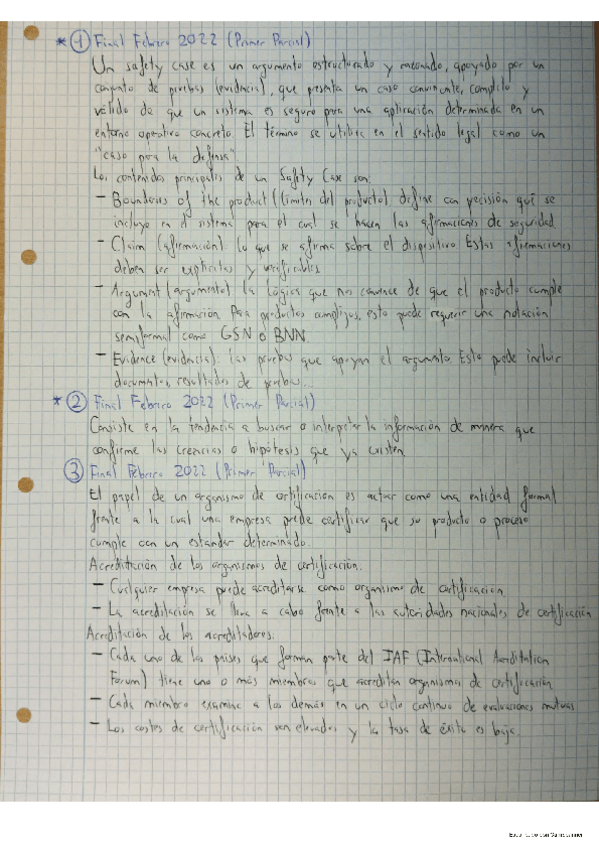 * ① Final Febrero 2022 (Primer Parcial)
Un safety case es un argumento estructurado y razonado, apoyado por un
conjunto de pruebas (evidencia), que presenta un caso convincente, completo y
válido de que un sistema es seguro para una aplicación determinada en un
entorno operativo concreto. El término se utiliza en el sentido legal como un
"caso para la defensa"
Los contenidos principales de un Safety Case son:
- Boundaries of the product (límites del producto). define con precisión qué se
incluye en el sistema para el cual se hacen las afirmaciones de seguridad
- Claim (afirmación). lo que se afirma sobre el dispositivo. Estas afirmaciones
deben ser explícitas y verificables
- Argument (argumento). la lógica que nos convence de que el producto cumple
con la afirmación. Para productos complejos, esto puede requerir una notación
semiformal como GSN o BNN.
- Evidence (evidencia). las pruebas que apoyan el argumento. Esto puede incluir
documentos, resultados de pruebas...
* ② Final Febrero 2022 (Primer Parcial)
Consiste en la tendencia a buscar o interpretar la información de manera que
confirme las creencias o hipótesis que ya existen
③ Final Febrero 2022 (Primer Parcial)
El papel de un organismo de certificación es actuar como una entidad formal
frente a la cual una empresa puede certificar que su producto o proceso
cumple con un estándar determinado.
Acreditación de los organismos de certificación.
- Cualquier empresa puede acreditarse como organismo de certificación
- La acreditación se lleva a cabo frente a las autoridades nacionales de certificación
Acreditación de los acreditadores.
- Cada uno de los países que forman parte del IAF (International Acreditation
Forum) tiene uno o más miembros que acreditan organismos de certificación
- Cada miembro examina a los demás en un ciclo continuo de evaluaciones mutuas
- Los costes de certificación son elevados y la tasa de éxito es baja.